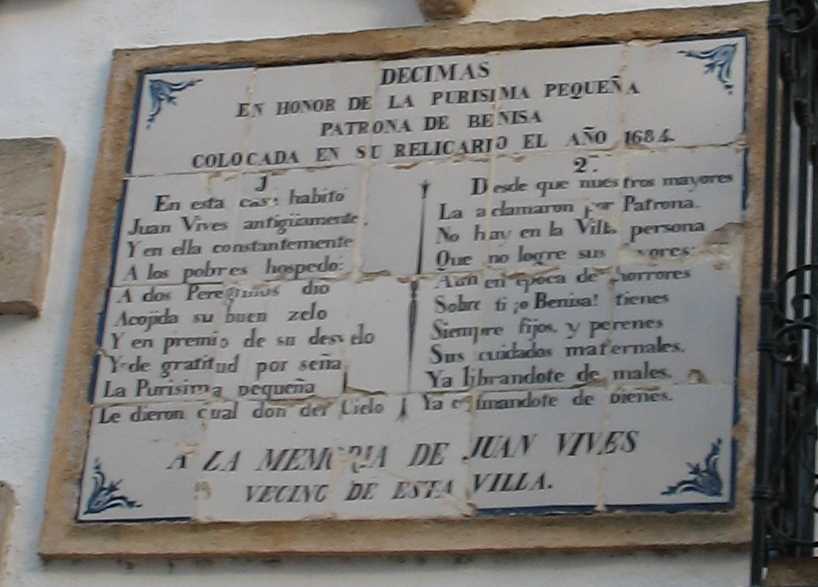 DECIMAS
EN HONOR DE LA PURISIMA PEQUEÑA
PATRONA DE BENISA
COLOCADA EN SU RELICARIO EL AÑO 1684.
1
En esta casa habitó
Juan Vives antigüamente.
Y en ella constantemente
A los pobres hospedo:
A dos Peregrinos dio
Acojida su buen zelo
Y en premio de su desvelo
Y de gratitud por seña
La Purisima pequeña
Le dieron cual don del Cielo
2.
Desde que nuestros mayores
La aclamaron por Patrona.
No hay en la Villa persona
Que no logre sus favores:
Aun en epoca de horrores
Sobre ti ¡o Benisa! tienes
Siempre fijos, y perenes
Sus cuidados maternales.
Ya librandote de males.
Ya colmandote de bienes.
A LA MEMORIA DE JUAN VIVES
VECINO DE ESTA VILLA.